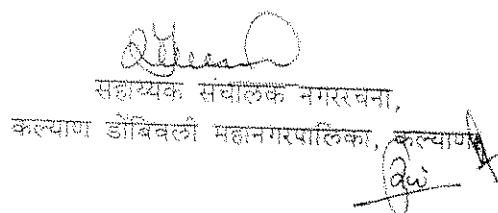 सहाय्यक संचालक नगररचना,
कल्याण डोंबिवली महानगरपालिका, कल्याण